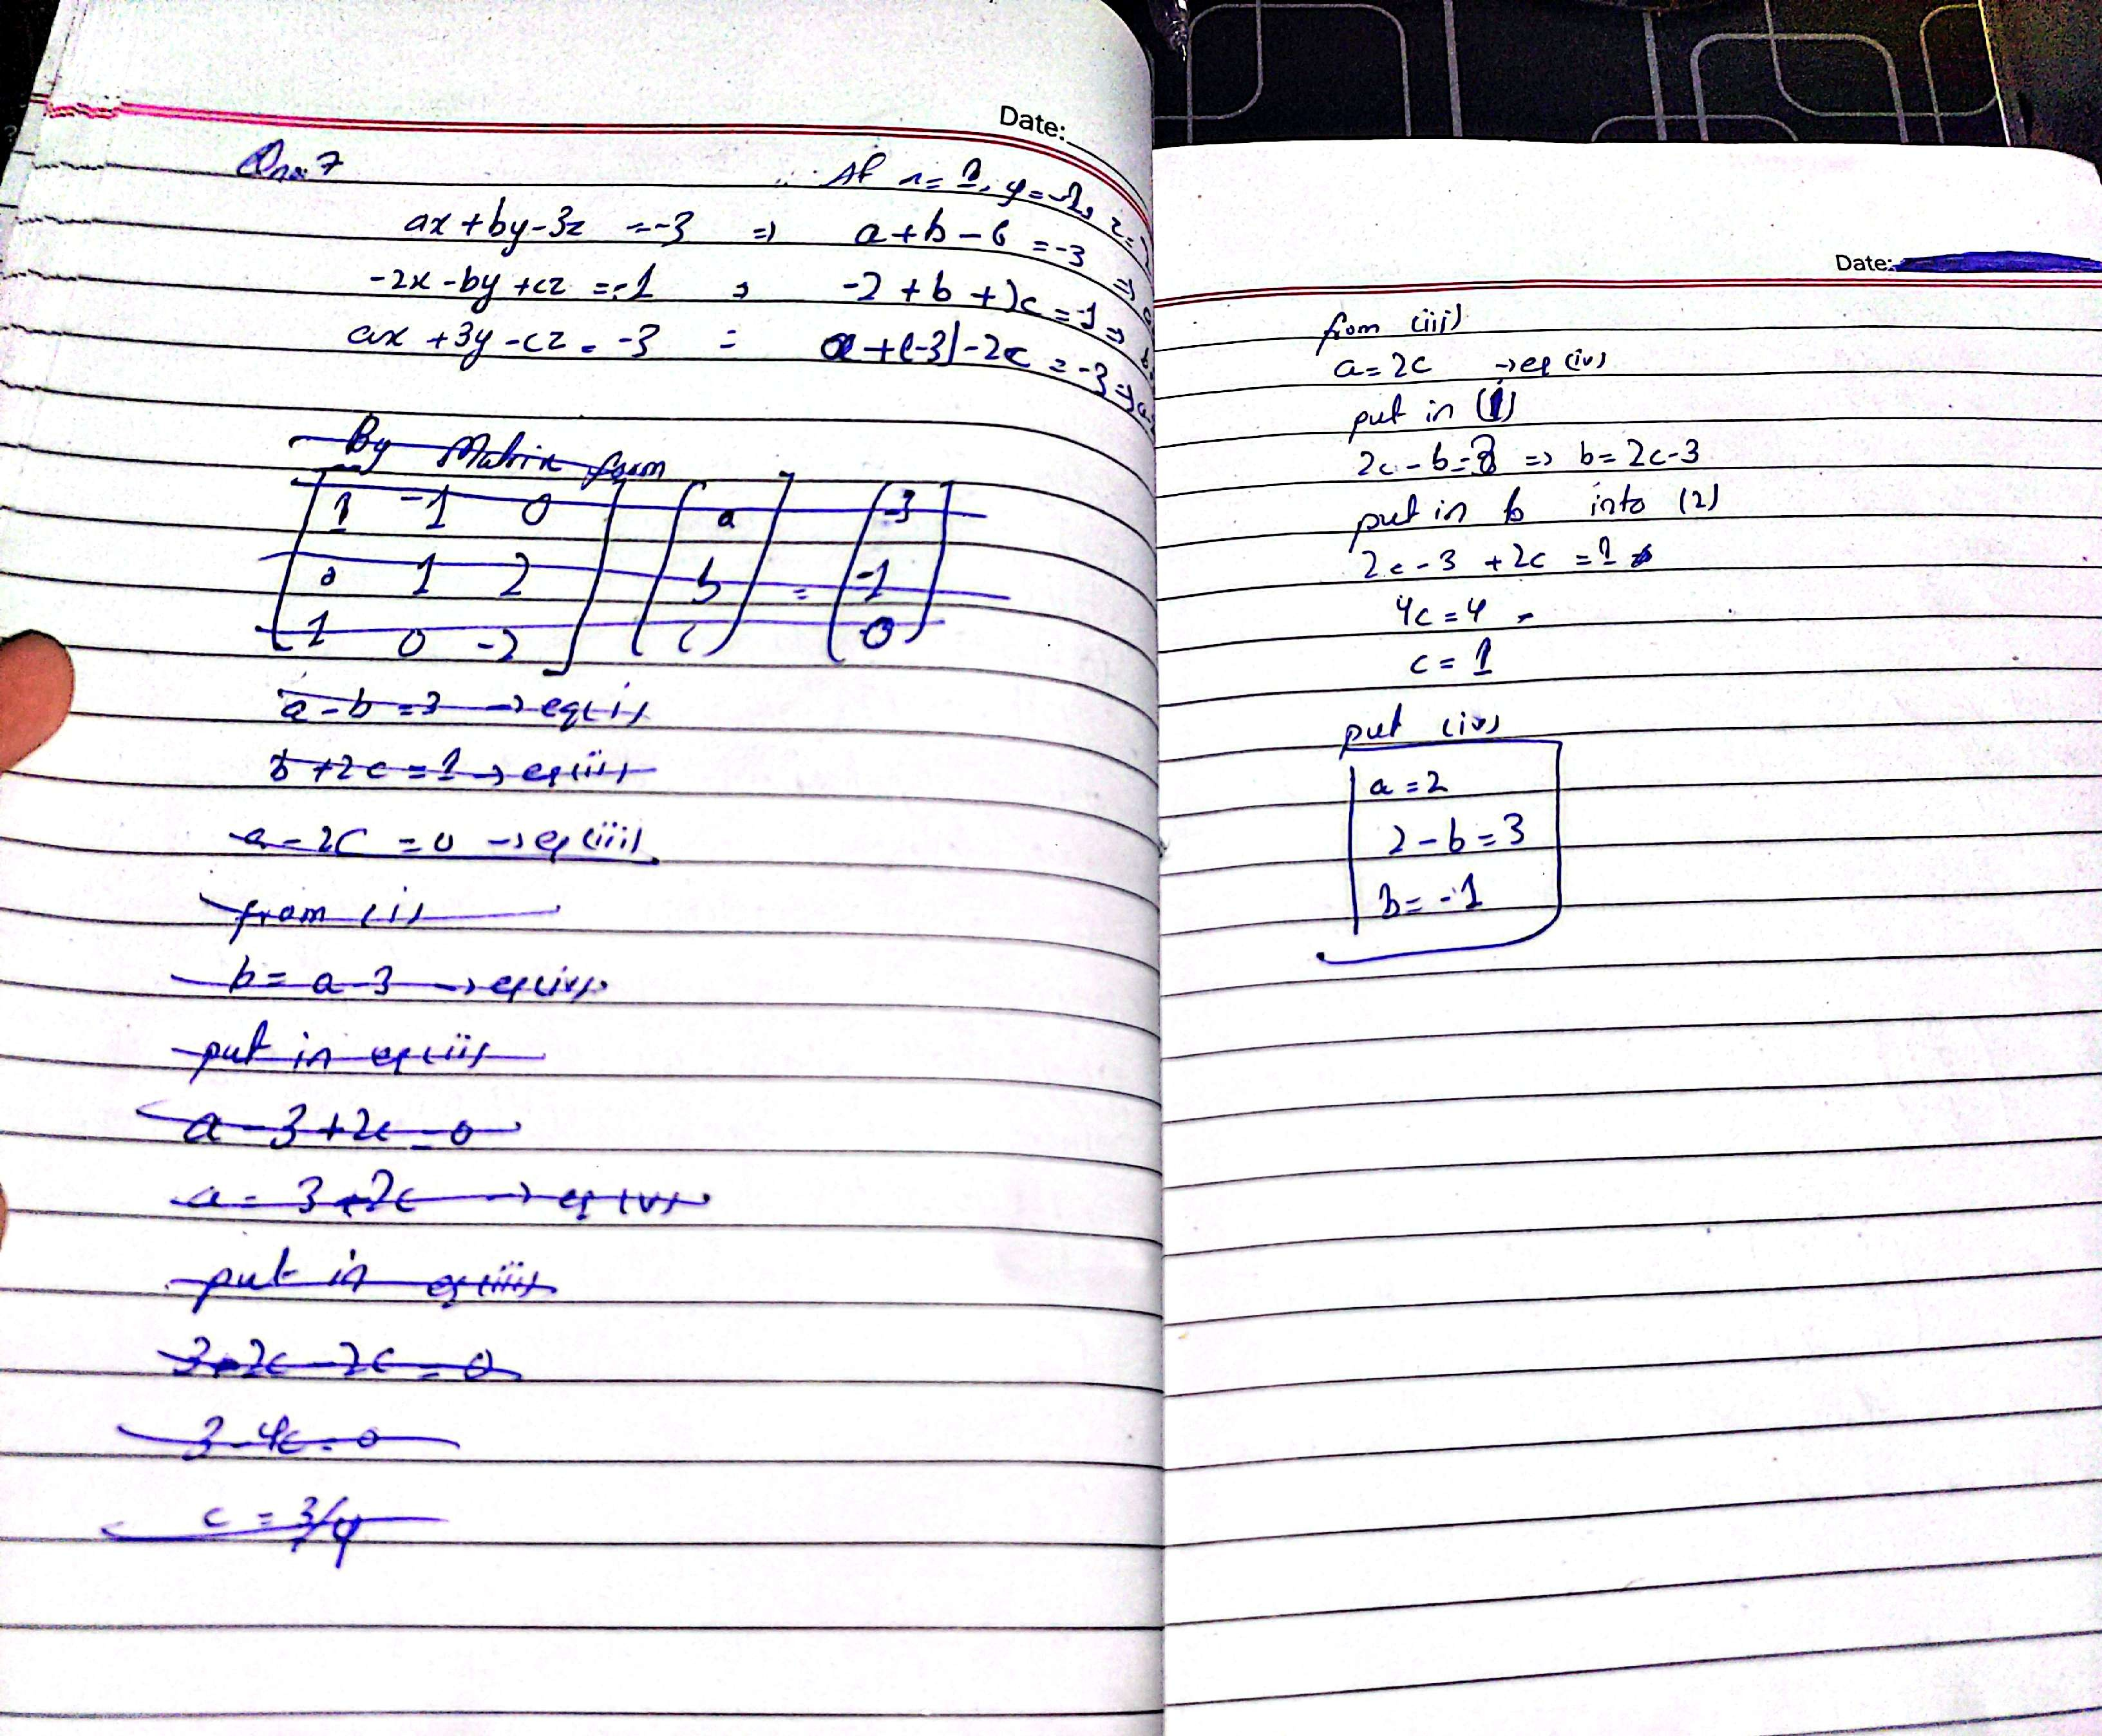 Date:
Qno.7
If x=1, y=-1, z=2
ax+by-3z =-3 => a+b-6 =-3 =>
-2x-by+cz =-1 => -2+b+2c =-1 =>
ax+3y-cz = -3 = a+(-3)-2c =-3 =>
By Matrix form
1 -1 0 a -3
0 1 2 b = -1
1 0 -2 c 0
a-b=3 → eq(i)
b+2c=1 → eq(ii)
a-2c=0 → eq(iii)
from (i)
b= a-3 → eq(iv)
put in eq(ii)
a-3+2c=0
a= 3-2c → eq(v)
put in eq(iii)
3-2c-2c=0
3-4c=0
c=3/4
Date:
from (iii)
a=2c → eq(iv)
put in (1)
2c-b=3 => b=2c-3
put in b into (2)
2c-3+2c=1
4c=4
c=1
put (iv)
a=2
2-b=3
b=-1